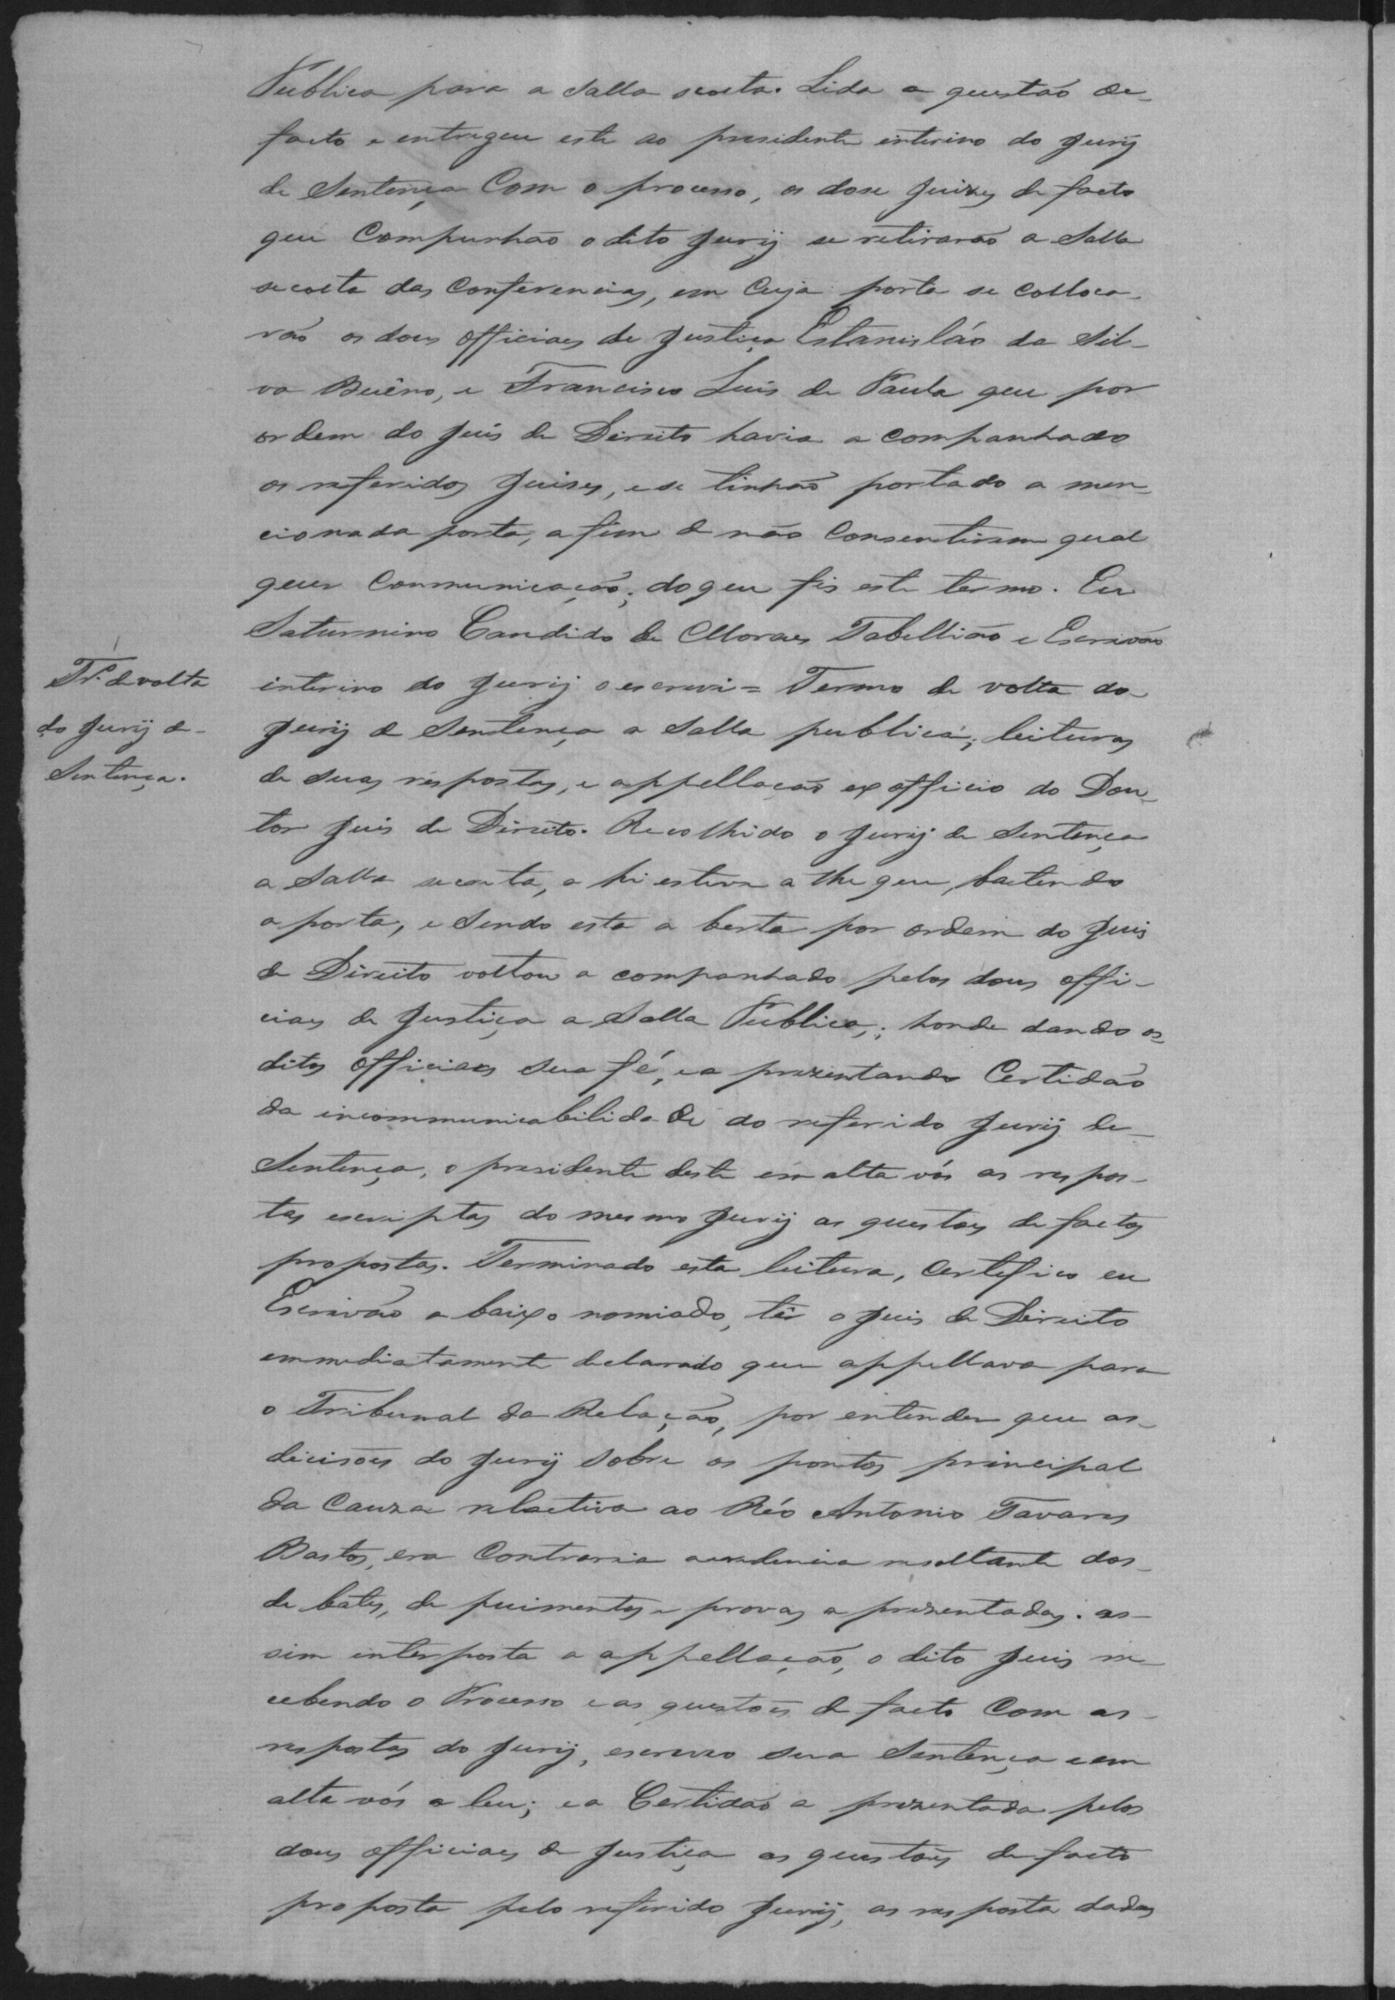 Publica para a Salla secreta. Lida a questão de
facto e entregue este ao presidente interino do Jurÿ
de Sentença Com o processo, os dose Juizes de facto
que Compunhão o dito Jurÿ se retirarão a Salla
secreta das Conferencias, em Cuja porta se colloca-
rão os dous Officiaes de Justiça Estanisláo da Sil-
va Buêno, e Francisco Luis de Paula que por
ordem do Juis de Direito havia a companhado
os referidos Juises, e se tinhão portado a men-
cionada porta, a fim de não Consentirem qual
quer Communicação; do que fis este termo. Eu
Saturnino Candido de Moraes Tabellião e Escrivão
interino do Jurÿ o escrevi = Termo de volta do
Tr.º de volta
do Jurÿ de
Sentença.
Jurÿ de Sentença a Salla publica; leituras
de suas respostas, e appellação ex officio do Dou-
tor Juis de Direito. Recolhido o Jurÿ de Sentença
a Salla secreta, a hi esteve a the que, batendo
a porta, e Sendo esta a berta por ordem do Juis
de Direito voltou a companhado pelos dous offi-
ciaes de Justiça a Salla Publica; honde dando os
ditos Officiaes sua fé, e a prezentando Certidão
da incommunicabilidade do referido Jurÿ de
Sentença, o presidente deste em alta vós as respos-
tas escriptas do mesmo Jurÿ as questões de factos
propostas. Terminado esta leitura, Certefico eu
Escrivão a baixo nomiado, ter o Juis de Direito
emmediatamente declarado que appellava para
o Tribunal da Relação, por entender que as
dicisões do Jurÿ Sobre os pontos principal
da Cauza relactiva ao Réo Antonio Tavares
Bastos, era Contraria a evidencia resultante dos
de bates, de puimentos e provas a prezentadas. as-
sim interposta a appellação, o dito Juis re
cebendo o Processo e as questões de facto Com as
respostas do Jurÿ, escreveo sua Sentença e em
alta vós a leu; e a Certidão a prezentada pelos
dous Officiaes de Justiça as questões de facto
proposta pelo referido Jurÿ, as resposta dadas